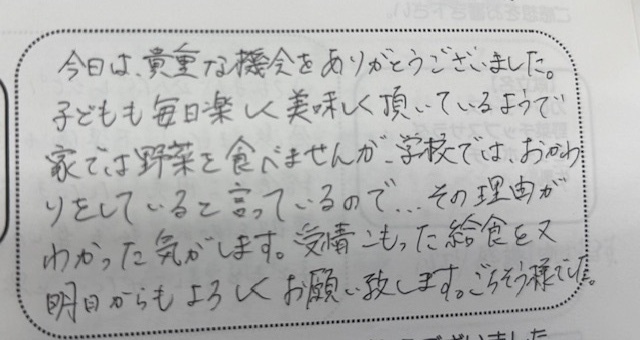 今日は、貴重な機会をありがとうございました。
子どもも毎日楽しく美味しく頂いているようで
家では野菜を食べませんが、学校では、おかわ
りをしていると言っているので…その理由が
わかった気がします。愛情こもった給食を又
明日からもよろしくお願い致します。ごちそう様でした。
ございました